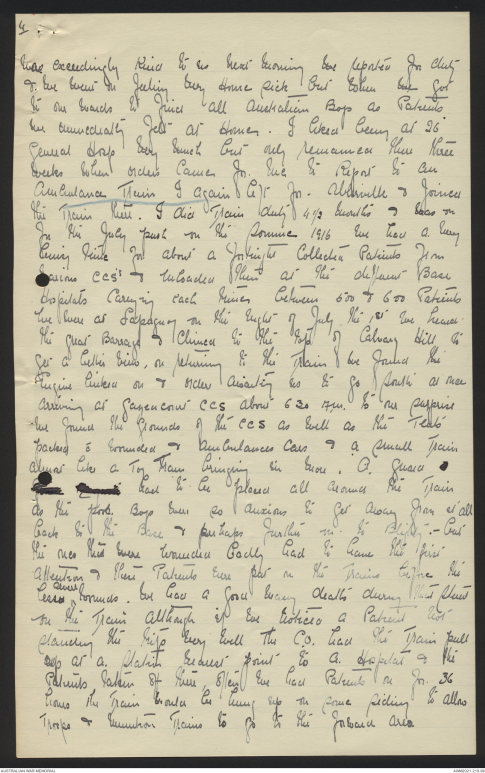 4
was exceedingly kind to us next morning we reported for duty
& we went on feeling very Home sick but when we got
to our wards to find all Australian Boys as Patients
we immediately felt at Home. I liked being at 26
General Hosp very much but only remained there three
weeks when orders came for me to Report to an
Ambulance Train I again left for Abbeville & joined
the Train there. I did Train duty 4½ months & was on
for the July push on the Somme 1916 we had a very
busy time for about a fortnight Collected Patients from
various CCS's & unloaded them at the different Base
Hospitals Carrying each time between 500 & 600 Patients
we were at on the night of July the 1st we heard
the great Barrage & climed to the top of Calvary Hill to
get a better view, on returning to the Train we found the
Engine linked on & orders awaiting us to go South at once
arriving at Gazencourt CCS about 6 30 A.M. to our surprise
we found the Grounds of the CCS as well as the Tents
packed with wounded & ambulances Cars & a small Train
almost like a Toy Train bringing in more. A. guard
had to be placed all around the Train
as the poor Boys were so anxious to get away from it all
back to the Base & perhaps further on to Blighty - but
the ones that were wounded badly had to have the first
attention & these Patients were put on the Trains before the
less severe wounds. We had a good many deaths during that Stunt
on the Train although if we noticed a Patient not
standing the trip very well the C.O. had the Train pull
up at a station nearest point to a Hospital & the
Patients taken off there often we had Patients on for 36
hours the Train would be hung up on some siding to allow
Troops & Munition Trains to go to the forward area
AUSTRALIAN WAR MEMORIAL